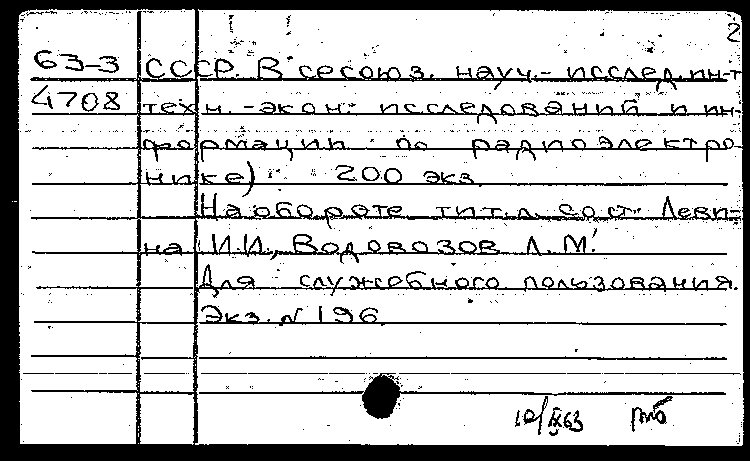 2
63-3 СССР. Всесоюз. науч.-исслед. ин-т
4708 техн.-экон. исследований и ин-
формации по радиоэлектро-
нике) 200 экз.
На обороте тит. л. сост. Леви-
на И.И., Водовозов Л.М.
Для служебного пользования.
Экз. N 196
10/IX63